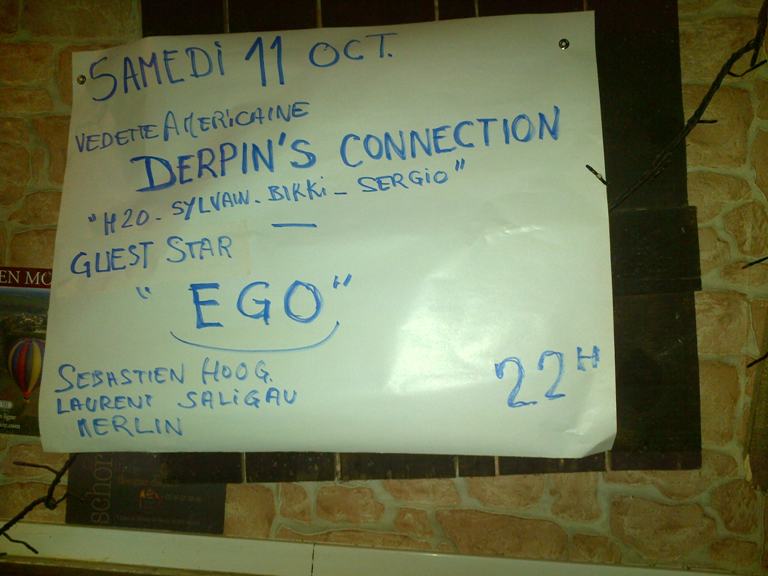 SAMEDI 11 OCT.
VEDETTE AMERICAINE
DERPIN'S CONNECTION
"H2O - SYLVAIN - BIKKI - SERGIO"
—
GUEST STAR
"EGO"
SEBASTIEN HOOG.
LAURENT SALIGAU
MERLIN
22H
EN MO
schor